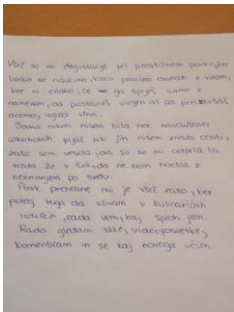 Všeč so mi degustacije pri praktičnem pouku, ker
lahko se naučimo, kako pravilno ravnati z vinom,
ker ni enako, če ga spiješ samo z
namenom, da postaneš vinjen ali pa prepoznaš
aromo, izgled vina.
Sama nikoli nisem bila nek navdušenec
alkoholnih pijač niti jih nisem znala ceniti,
zato sem vesela, da so se mi odprla ta
vrata že v šoli, da ne bom hodila z
neznanjem po svetu.
Pouk prehrane mi je všeč zato, ker
poleg tega da uživam v kulinaričnih
rada vem, kaj sploh jem.
Rada gledam slike, videoposnetke,
komentiram in se kaj novega učim.